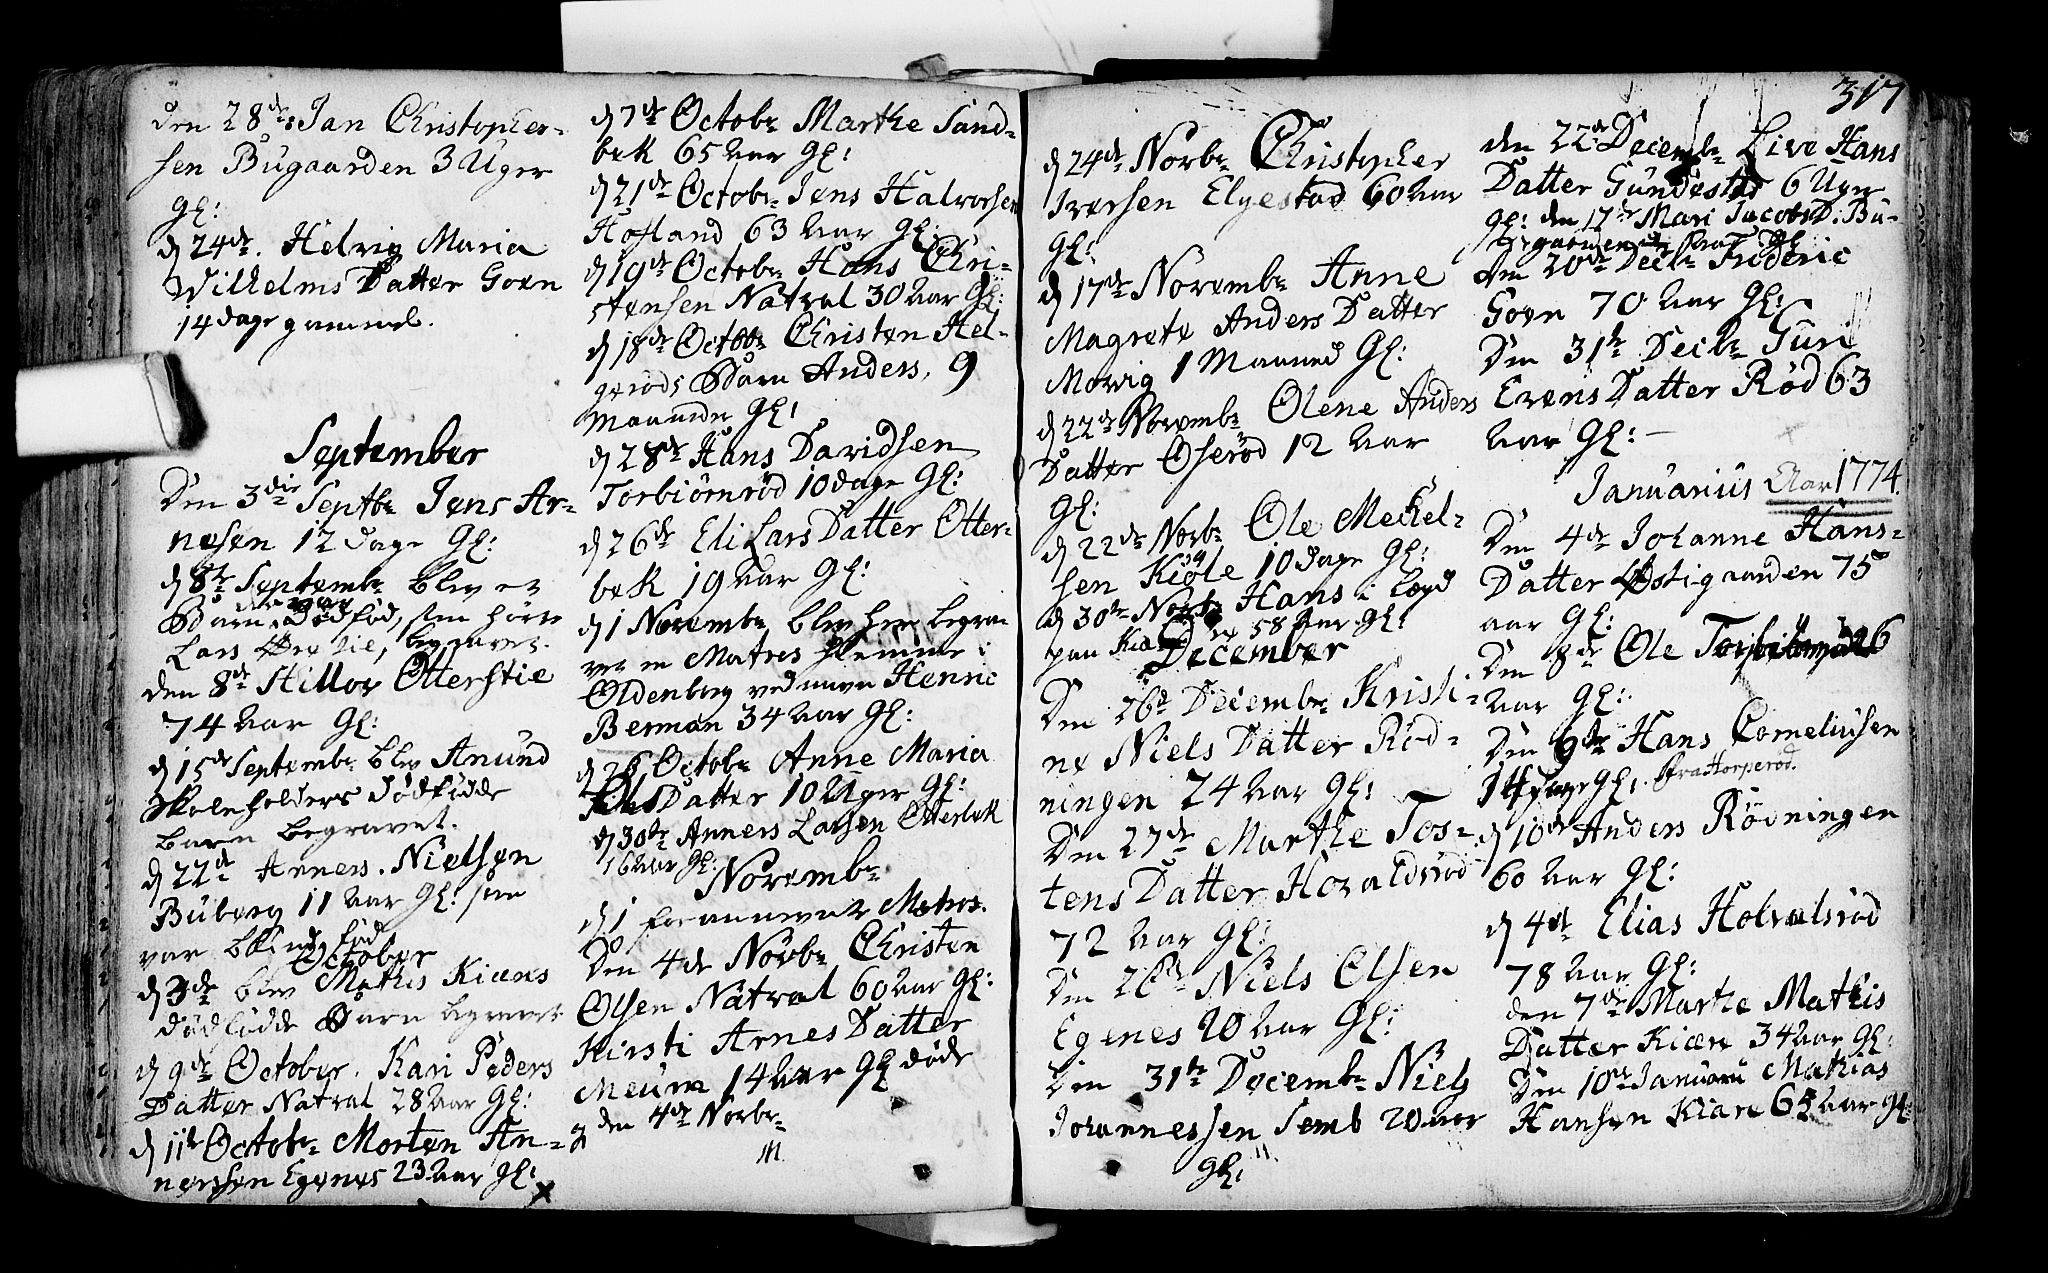 Den 28de Jan Christopher-
sen Bugaarden 3 Uger
Gl:
d 24de. Helvig Maria
Wilhelms Datter Goen
14 dage gammel.
September
Den 3die Septbr Jens Ar-
nesen 12 dage Gl:
d 8de Septembr blev et
Barn, dødfød, som hörte
Lars til, begravet.
den 8de Hillor Otterstie
74 aar Gl:
d 15de Septembr blev Anund
Skoleholders dödfödde
barn begravet.
d 22de Anners Nielsen
Buberg 11 aar Gl: som
var blind fød
October
d 3de blev Mathis Kiærs
dödfödde Barn begravet
d 9de October. Kari Peders
Datter Natral 28 aar Gl:
d 11te Octobr Morten An-
nersen Egenes 23 aar Gl:
d 7de Octobr Marthe Sand-
bek 65 aar Gl:
d 21de Octobr Jens Halvorsen
Hofland 63 aar Gl:
d 19de Octobr Hans Chri-
stensen Natral 30 aar Gl:
d 18de Octobr Christen Hel-
geröds Barn Anders, 9
Maaneder Gl:
d 28de Hans Davidsen
Torbiörnröd 10 dage Gl:
d 26de Eli Lars Datter Otter-
bek 19 aar Gl:
d 1 Novembr blev her begra
vet en Matros hiemme i
Oldenborg ved navn Henric
Berman 34 aar Gl:
d 26 Octobr Anne Maria
Ols Datter 10 Uger Gl:
d 30te Anners Larsen Otterbek
16 aar Gl:
Novembr
d 1 forannevnte Matros.
Den 4de Novbr Christen
Olsen Natral 60 aar Gl:
Kirsti Arnes Datter
Meum 14 aar Gl döde
den 4de Novbr
317
d 24de Novbr Christopher
Iversen Elgestad 60 aar
Gl:
d 17de Novembr Anne
Magrete Anders Datter
Morvig 1 Maaned Gl:
d 22de Novembr Olene Anders
Datter Oseröd 12 aar
Gl:
d 22de Novbr Ole Mechel-
sen Kiöle 10 dage Gl:
d 30te Novbr Hans i Loyd
paa 58 aar Gl:
December
Den 26de Decembr Kristi-
ne Niels Datter Röd-
ningen 24 aar Gl:
Den 27de Marthe Tos-
tens Datter Hovaldsröd
72 aar Gl:
Den 26de Niels Olsen
Egenes 20 aar Gl:
Den 31te Decembr Niels
Johannessen Semb 20 aar
Gl:
den 22de Decembr Live Hans
Datter Gundestad 6 Uger
Gl: den 17de Mari Jacobs D. Bu-
gaarden Gl
den 20de Decbr Frideric
Goen 70 aar Gl:
Den 31te Decbr Guri
Evens Datter Röd 63
aar Gl:
Januarius Aar 1774.
Den 4de Johanne Hans-
Datter Östigaarden 75
aar Gl:
Den 8de Ole 26
aar Gl:
Den 9de Hans Corneliusen
14 dage Gl. fra Torperöd.
d 10de Anders Rödningen
60 aar Gl:
d 4de Elias Holvalsröd
78 aar Gl:
den 7de Marthe Mathis
Datter Kiære 34 aar Gl:
Den 10de Januarii Mathias
Hansen Kiære 65 aar Gl: